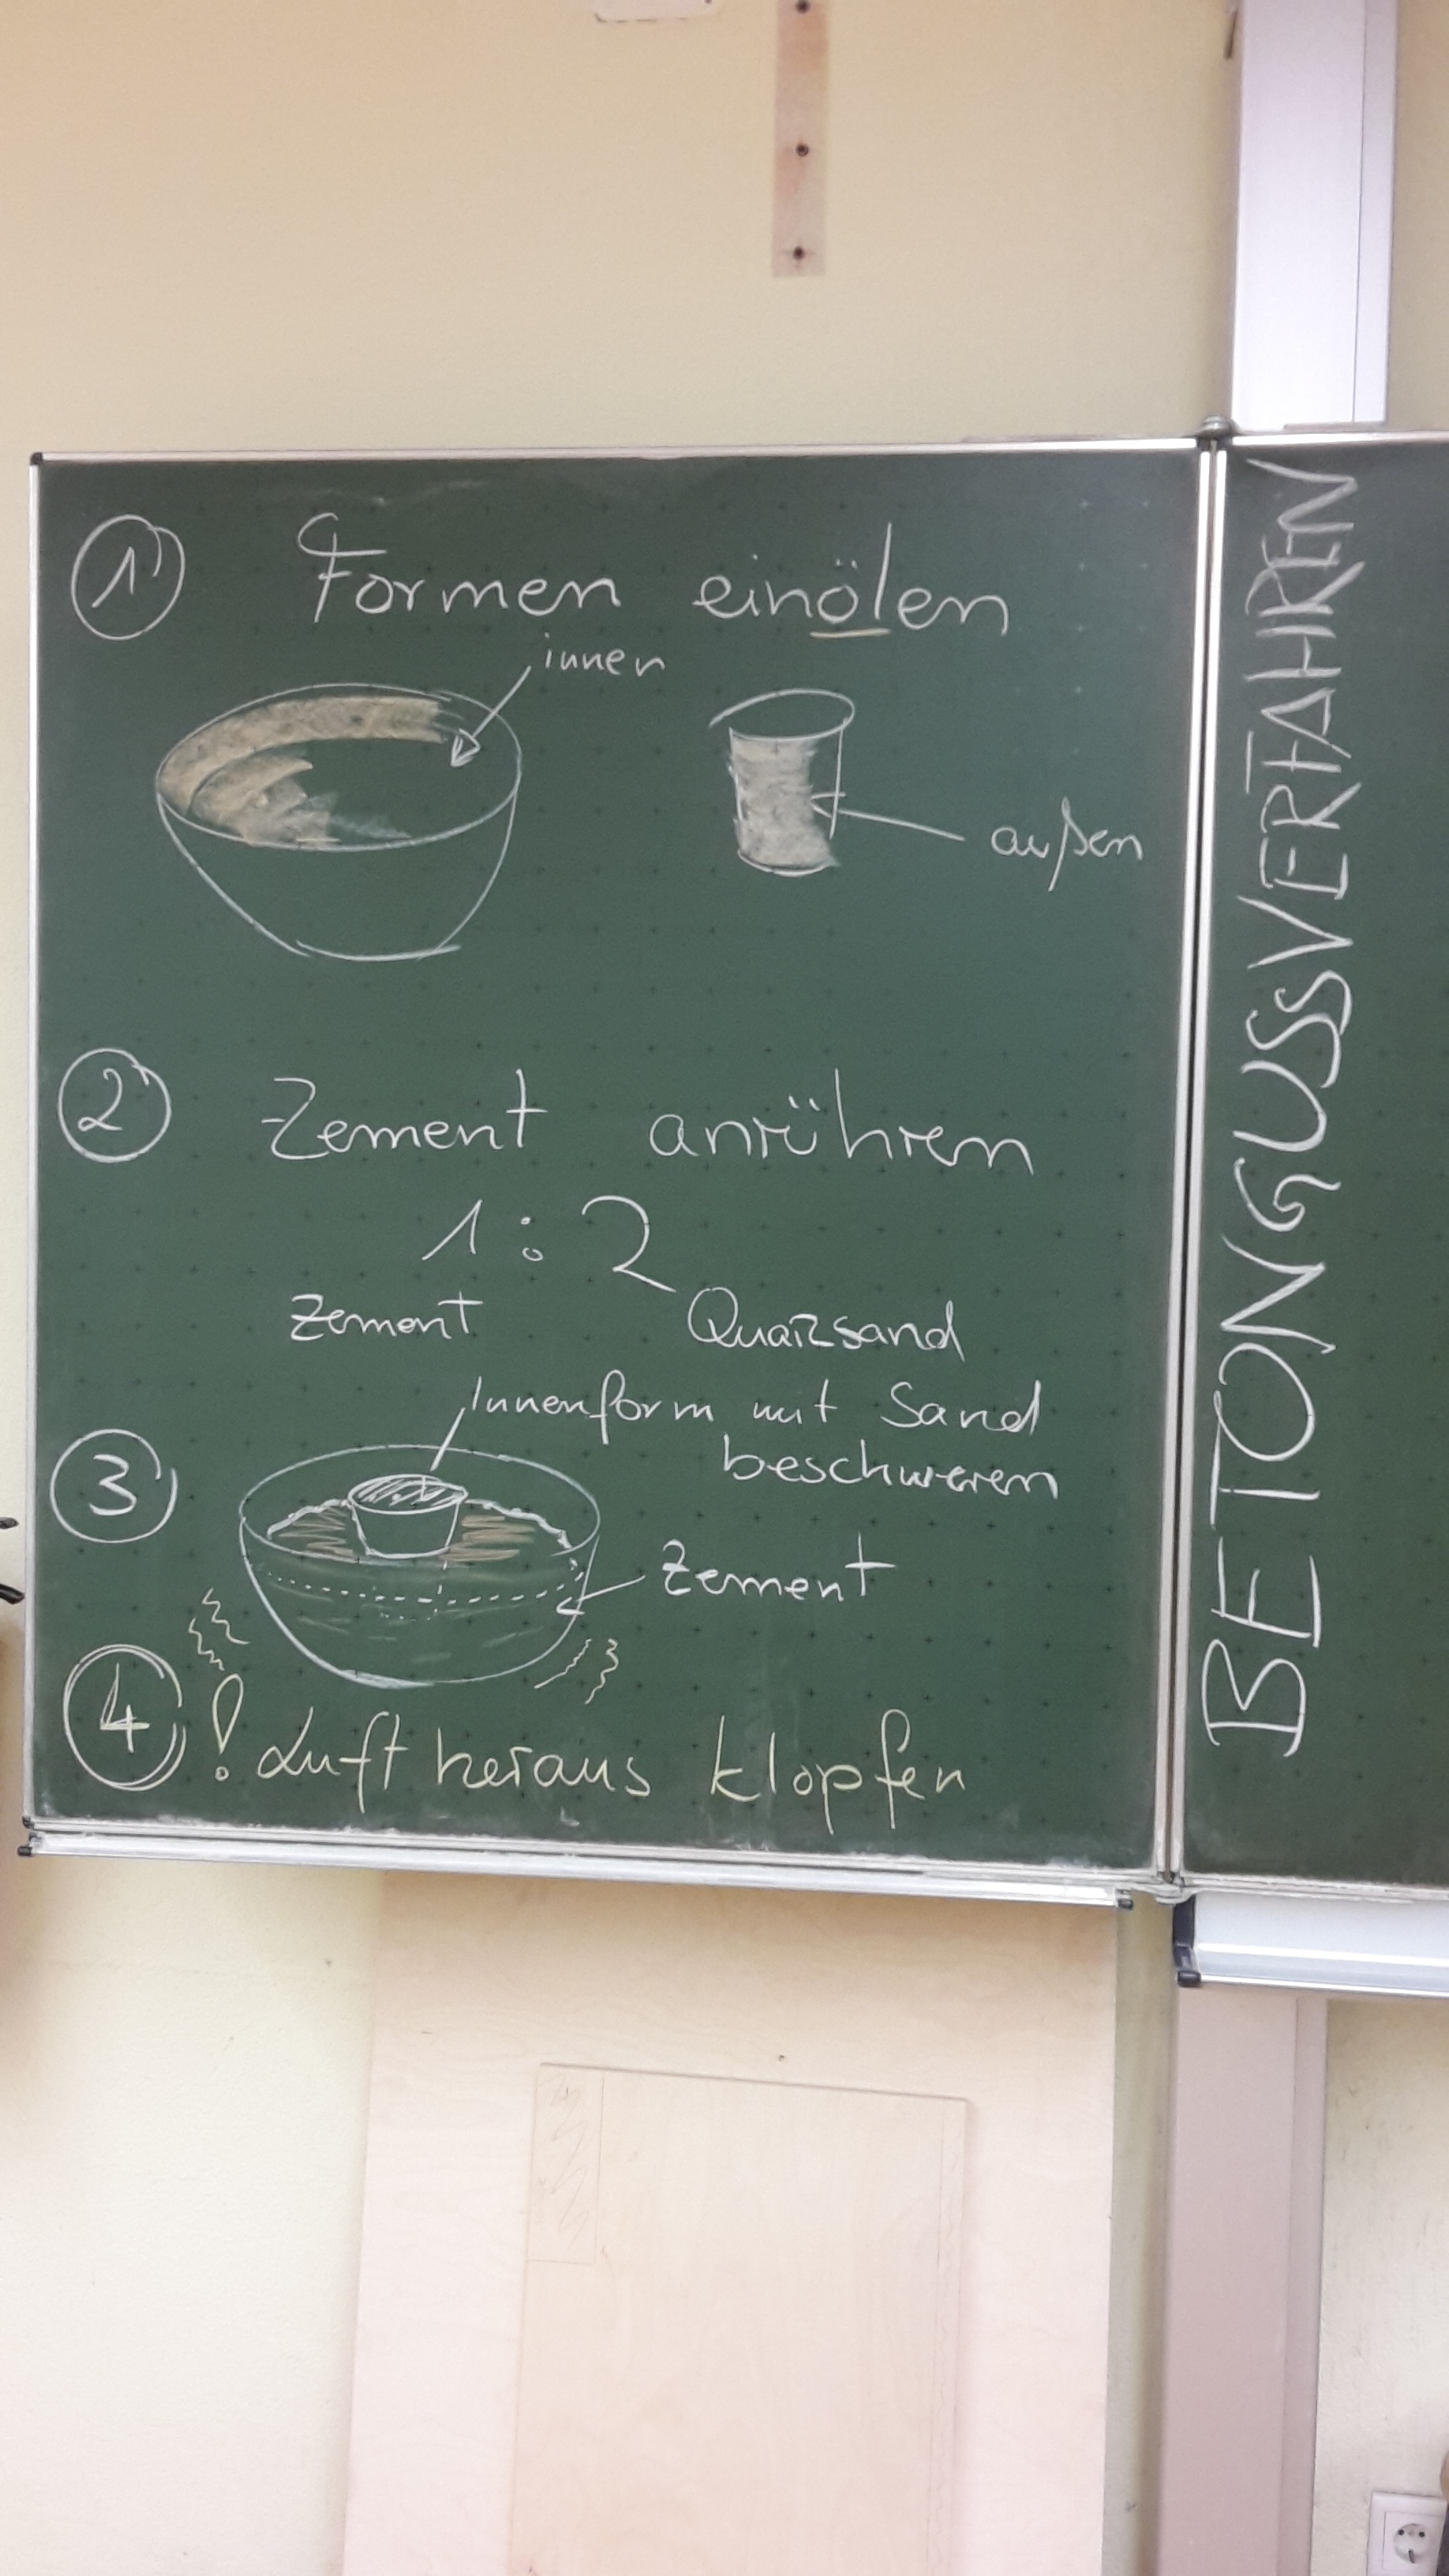 ① Formen einölen
innen
außen
② Zement anrühren
1 : 2
Zement Quarzsand
Innenform mit Sand
beschweren
③
Zement
④ ! Luft heraus klopfen
BETONGUSSVERFAHREN